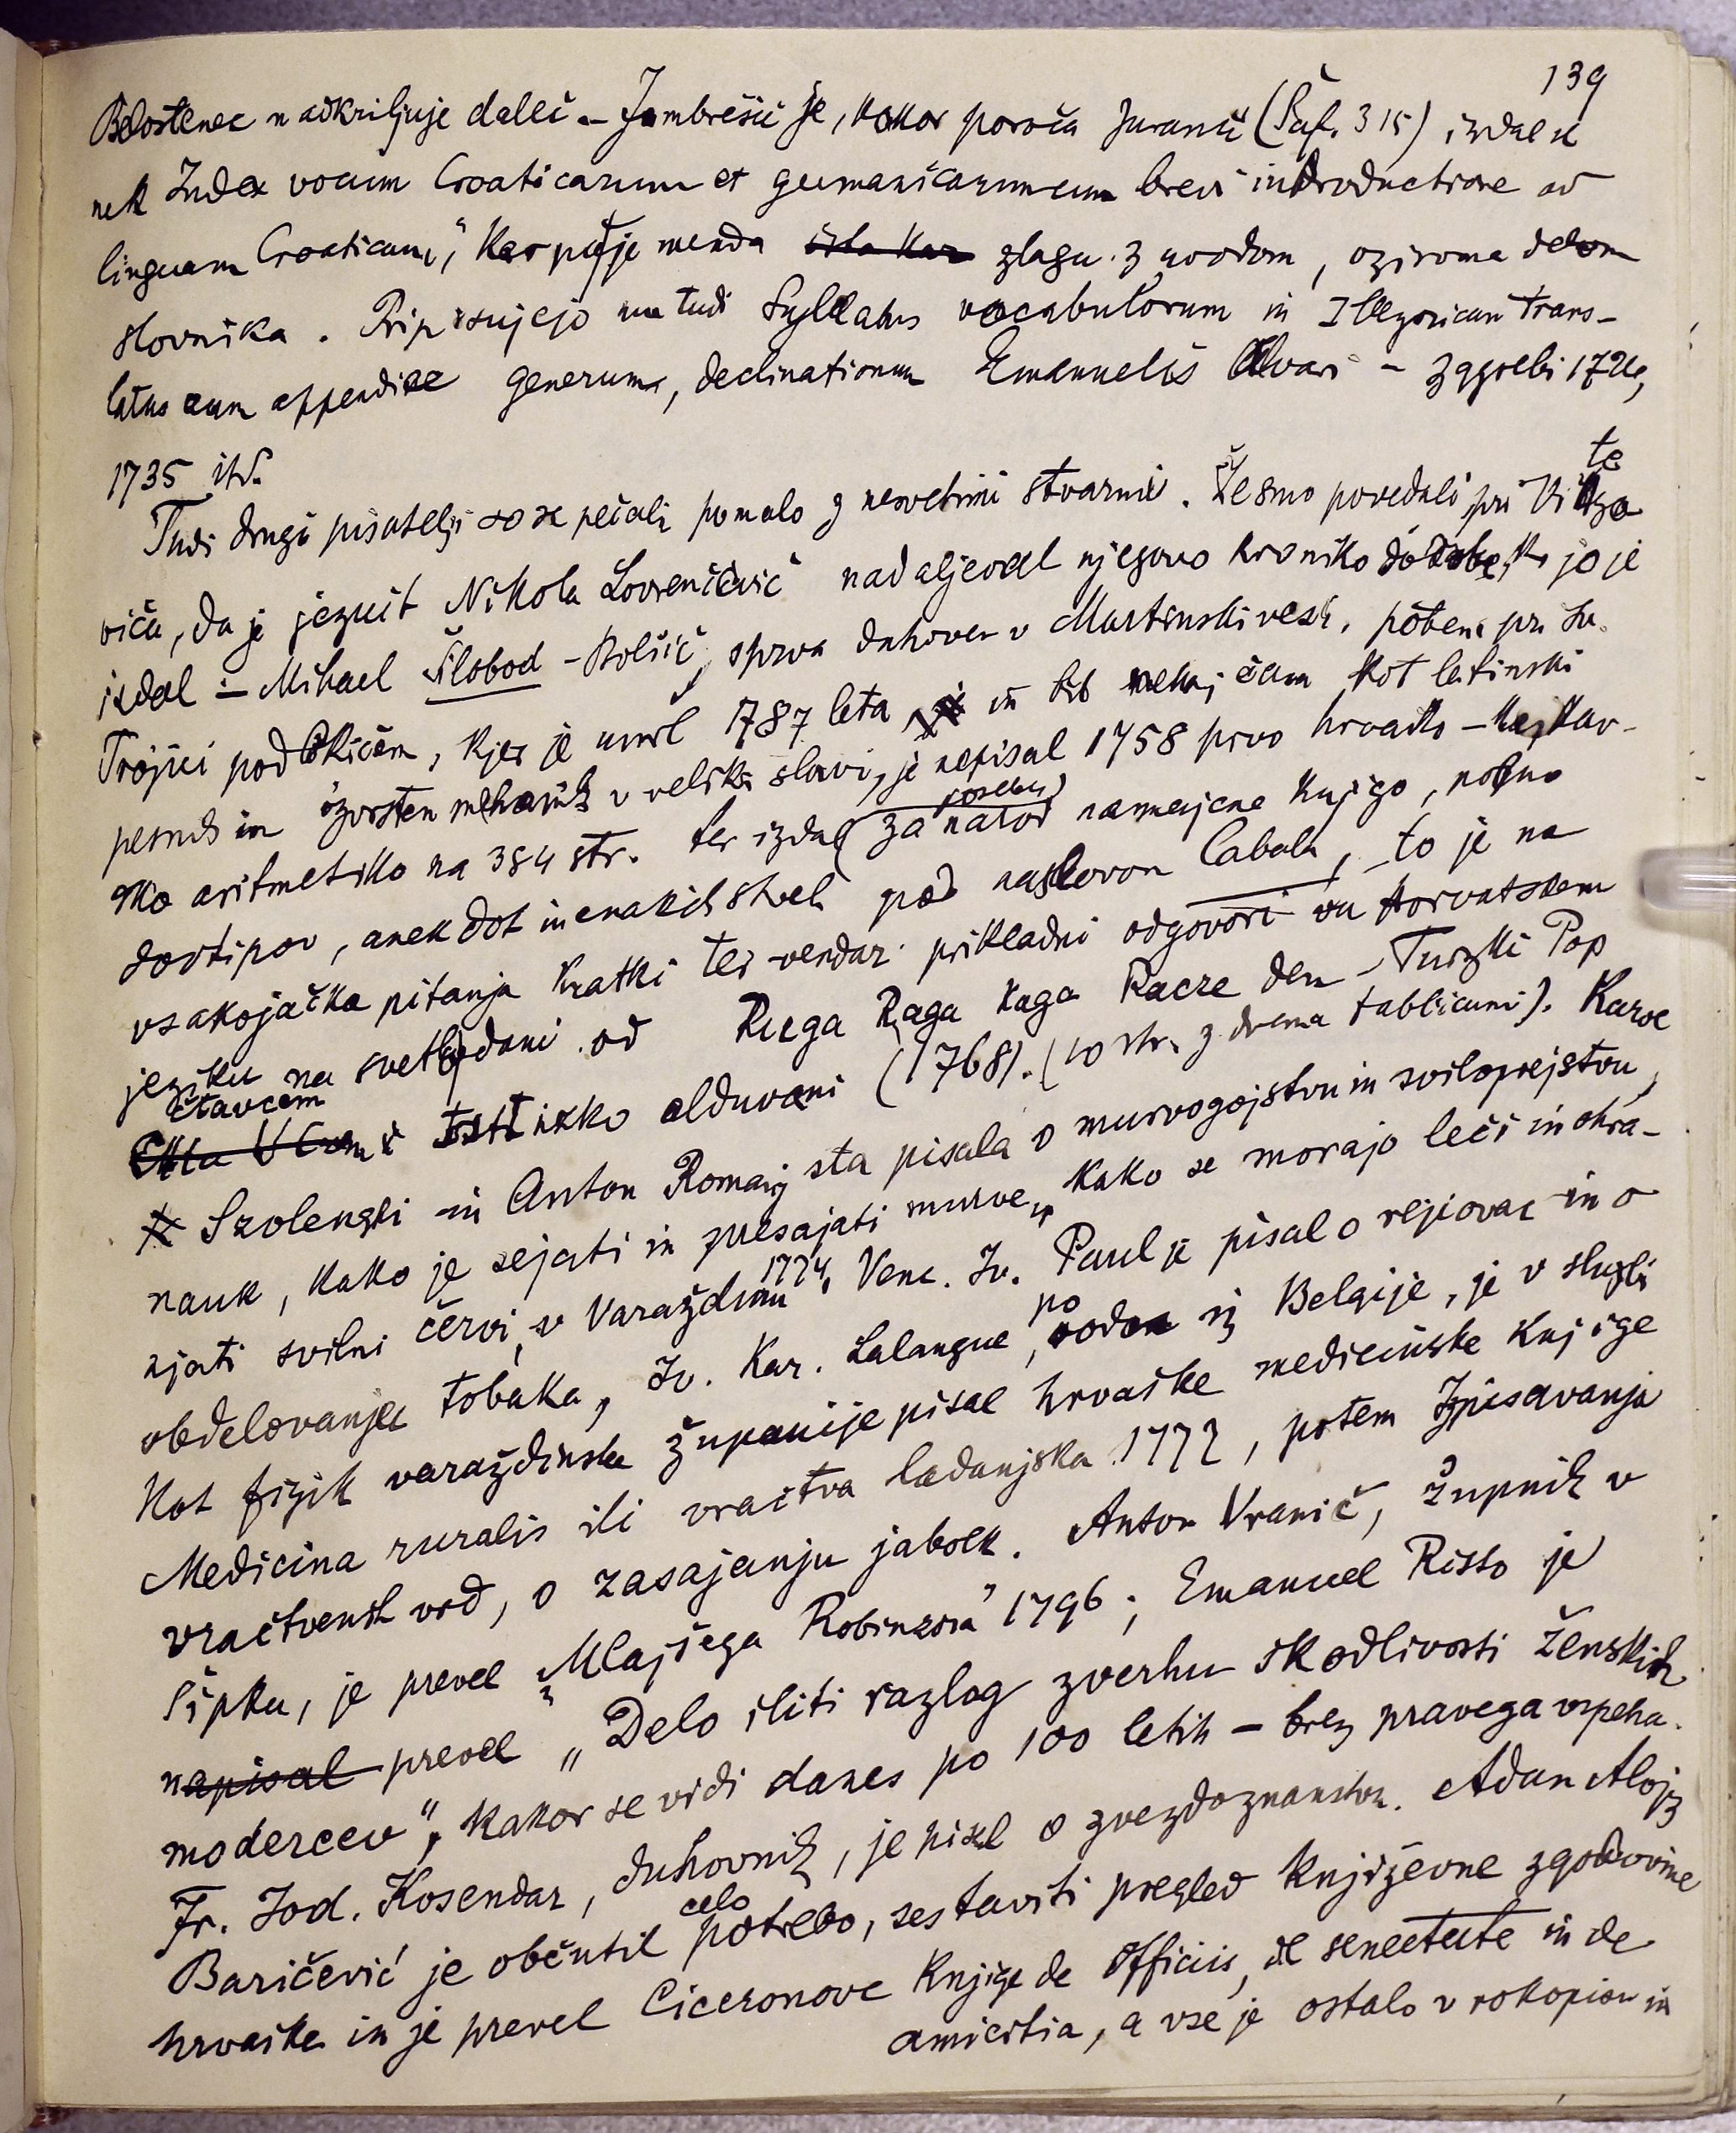 139
Belostenec nadkriljuje daleč. – Jambrešić je, kakor poroča Juranić (Šaf. 315), izdal
nek Index vocum Croaticarum et germanicarum cum brevi introductione ad
linguam Croaticam", kar pa je menda zlagu z uvodom, oziroma delom
slovnika. Pripisujejo mu tudi Syllabus vocabulorum in Illyricum trans-
latus cum appendice generum, declinationum Emanuelis Alvari – Zagrebi 1726,
1735 itd.
Tudi drugi pisatelji so se pečali pomalo z nesvetimi stvarmi. Že smo povedali pri Vitezo
viću, da je jezuit Nikola Lovrenčić nadaljeval njegovo kroniko do dobe, ko jo je
izdal – Mihael Šilobod - Bolšić, sprva duhoven v Martinski vesi, potem pri Sv.
Trojici pod Okićem, kjer je umrl 1787 leta, in bil nekaj časa kot latinski
pesnik in izvrsten mehanik v veliki slavi, je napisal 1758 prvo hrvaško – kajkav-
sko aritmetiko na 384 str. ter izdal za narod posebej namenjeno knjigo, polno
dovtipov, anekdot in enakih stvari pod naslovom Cabala, to je na
vsakojačka pitanja kratki ter vendar prikladni odgovori vu horvatskem
jeziku na svetlo dani od Ruga Raga Kaga Racze den – Turzki Pop
Čtavcem i istinsko alduvani (1768). (10 str. z dvema tablicami). Karve
Szolenghi in Anton Romani sta pisala o murvogojstvu in sviloprejstvu,
nauk, kako je sejati in presajati murve, kako se morajo leči in ohra-
njati svilni červi, v Varaždinu 1774. Venc. Iv. Paul je pisal o rejiovac in o
obdelovanju tobaka, Iv. Kar. Lalangue, po rodu iz Belgije, je v službi
kot fizik varaždinske županije pisal hrvaške medicinske knjige
Medicina ruralis ili vračtva ladanjska 1772, potem Izpisavanja
vračtvenih vod, o zasajanju jabolk. Anton Vranič, župnik v
Šipku, je prevel „Mlajšega Robinzona" 1796; Emanuel Risto je
napisal prevel „Delo iliti razlog zverhu škodlivosti ženskih
modercev", kakor se vidi danes po 100 letih – brez pravega uspeha.
Fr. Jod. Kosendar, duhovnik, je pisal o zvezdoznanstvu. Adam Alojz
Baričević je občutil celo potrebo, sestaviti pregled književne zgodovine
hrvaške in je prevel Ciceronove knjige de officiis, de senectute in de
amicitia, a vse je ostalo v rokopisu in